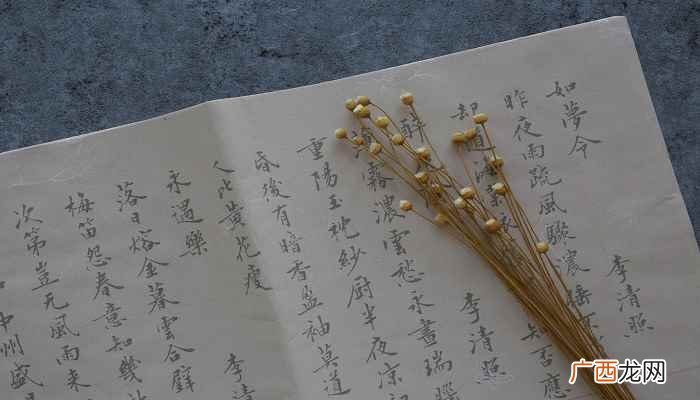 如夢令
李清照
昨夜雨疏風驟濃睡不
却道海棠依
知否應
醉
李清照
薄霧濃雲愁永晝瑞腦
重陽玉枕紗厨半夜涼初
昏後有暗香盈袖莫道
人比黃花瘦
李清
永遇樂
落日熔金暮雲合璧
梅笛怨春意知幾
次第豈无風雨來
中州盛
广西龙网